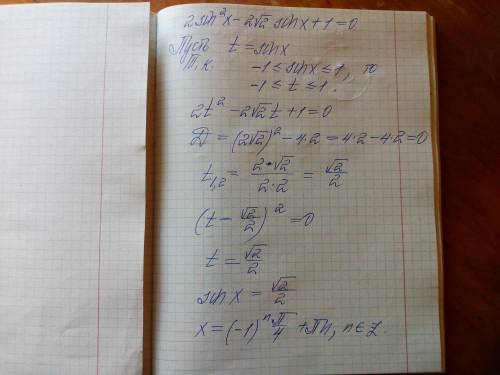 2sin²x - 2√2 sinx + 1 = 0
Пусть t = sinx
Т.к. -1 ≤ sinx ≤ 1, то
-1 ≤ t ≤ 1.
2t² - 2√2t + 1 = 0
D = (2√2)² - 4·2 = 4·2 - 4·2 = 0
t₁,₂ = (2·√2)/(2·2) = √2/2
(t - √2/2)² = 0
t = √2/2
sin x = √2/2
x = (-1)ⁿ π/4 + πn, n ∈ Z.